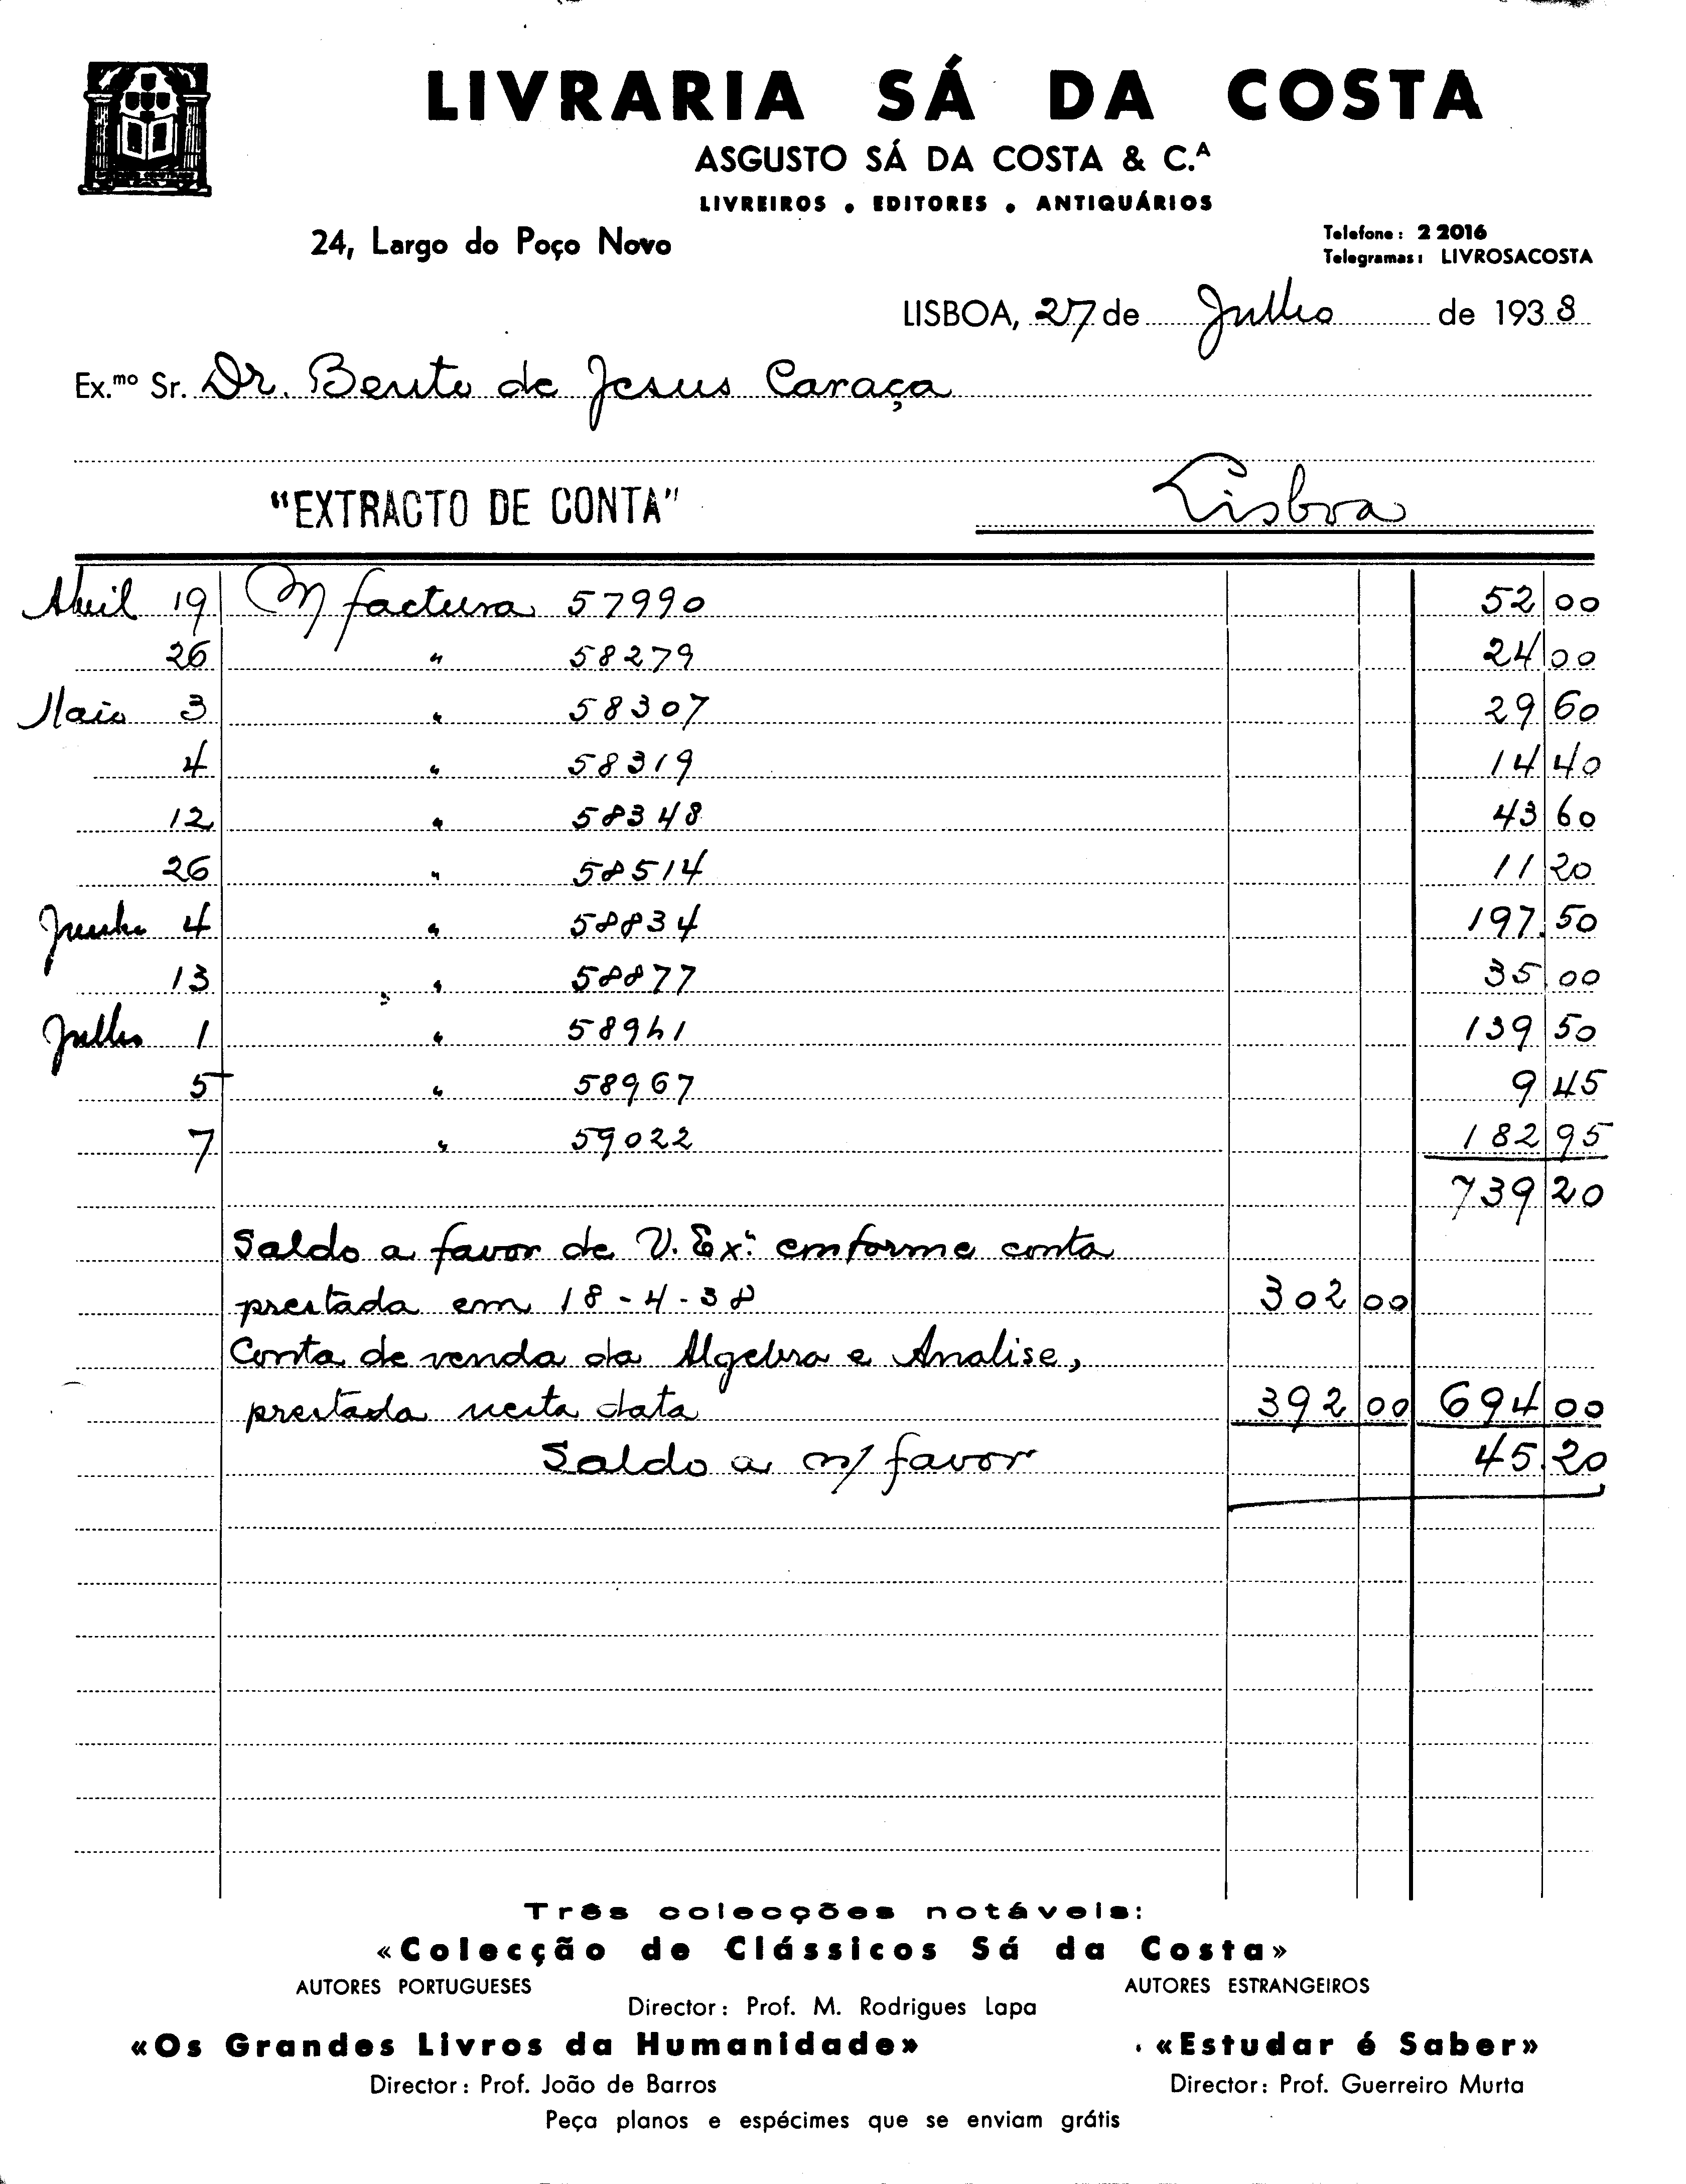 LIVRARIA SÁ DA COSTA
ASGUSTO SÁ DA COSTA & C.ᴬ
LIVREIROS • EDITORES • ANTIQUÁRIOS
24, Largo do Poço Novo
Telefone: 2 2016
Telegramas: LIVROSACOSTA
LISBOA, 27 de Julho de 1938
Ex.mo Sr. Dr. Bento de Jesus Caraça
"EXTRACTO DE CONTA" Lisboa
Abril 19 M factura 57990 52 00
26 " 58279 24 00
Maio 3 " 58307 29 60
4 " 58319 14 40
12 " 58348 43 60
26 " 58514 11 20
Junho 4 " 58834 197.50
13 " 58877 35 00
Julho 1 " 58941 139 50
5 " 58967 9 45
7 " 59022 182 95
739 20
Saldo a favor de V. Exª. conforme conta
prestada em 18-4-38 302 00
Conta de venda da Algebra e Analise,
prestada nesta data 392 00 694 00
Saldo a m/ favor 45.20
Três colecções notáveis:
«Colecção de Clássicos Sá da Costa»
AUTORES PORTUGUESES AUTORES ESTRANGEIROS
Director: Prof. M. Rodrigues Lapa
«Os Grandes Livros da Humanidade» «Estudar é Saber»
Director: Prof. João de Barros Director: Prof. Guerreiro Murta
Peça planos e espécimes que se enviam grátis